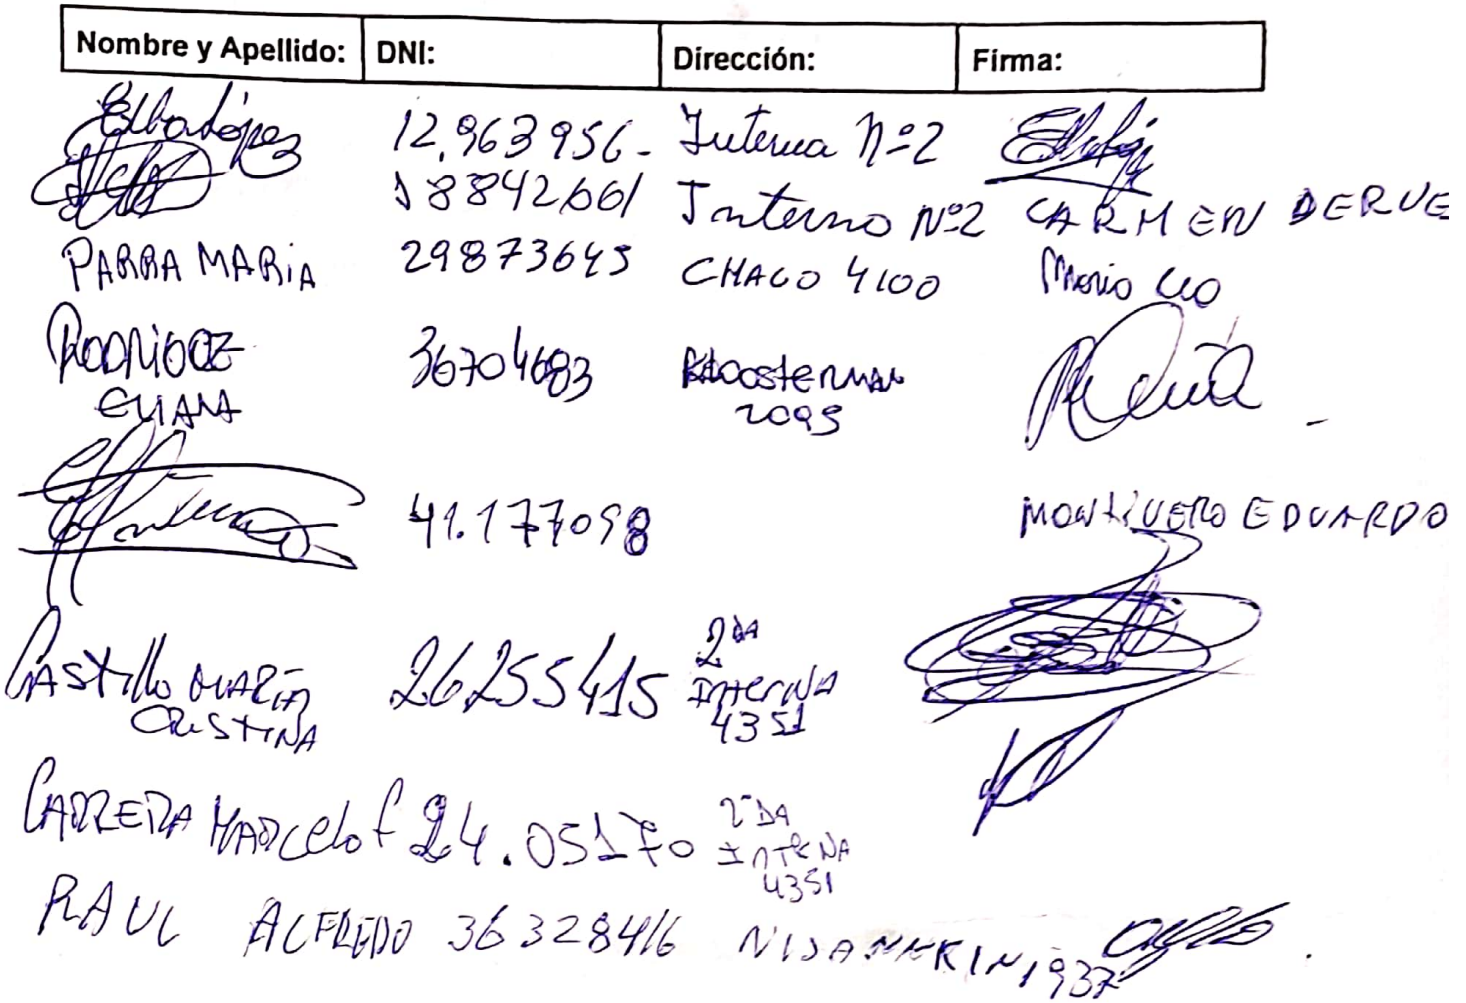 Nombre y Apellido: DNI: Dirección: Firma:
Elba López 12.963956- Interna Nº2
18842661 Interno Nº2 CARMEN DERVE
PARRA MARIA 29873645 CHACO 4100 Maria
RODRIGUEZ 36704683 Kloosterman
ELIANA 2095
41.177098 MONTIVERO EDUARDO
CASTILLO MARÍA 26255415 2DA INTERNA
CRISTINA 4351
CARRERA MARCELO f 24.05170 2DA INTERNA
4351
RAUL ALFREDO 36328416 1937